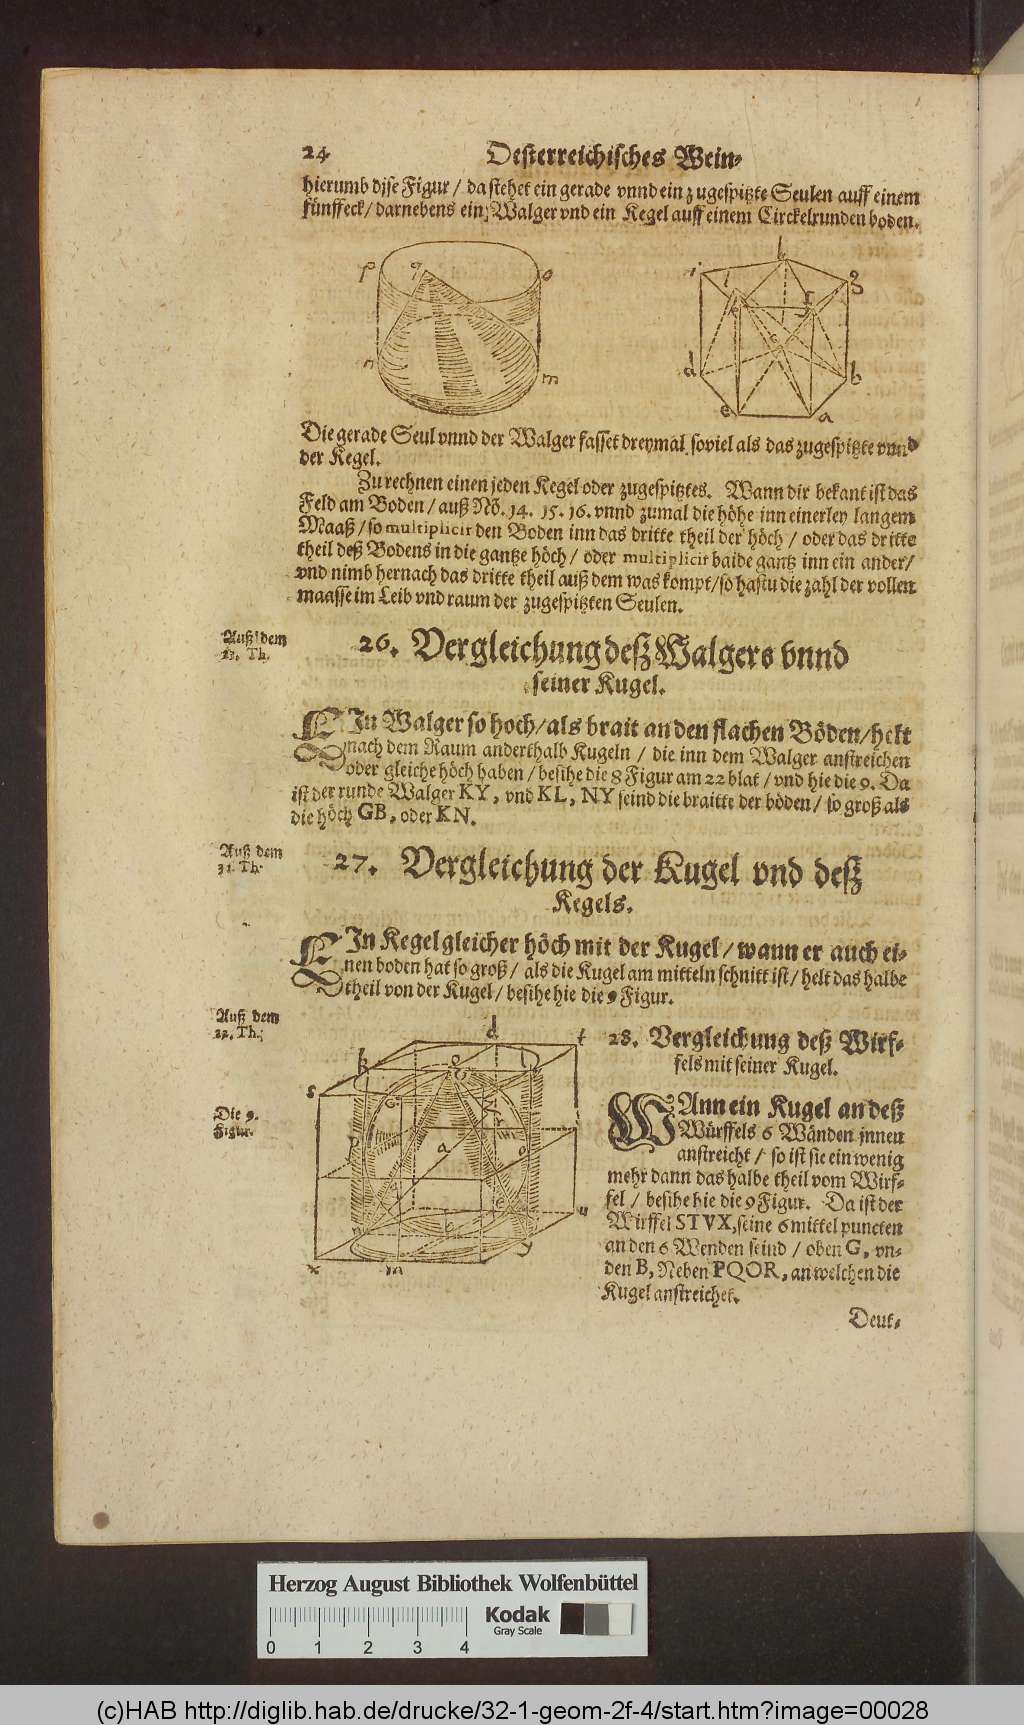 24
Oesterreichisches Wein-
hierumb dise Figur / da stehet ein gerade vnnd ein zugespitzte Seulen auff einem
fünffeck / darnebens ein Walger vnd ein Kegel auff einem Circkelrunden boden.
p q o
n m
i h g
l f
c
d b
e a
Die gerade Seul vnnd der Walger fasset dreymal soviel als das zugespitzte vnnd
der Kegel.
Zu rechnen einen jeden Kegel oder zugespitztes. Wann dir bekant ist das
Feld am Boden / auß Nō. 14. 15. 16. vnnd zumal die höhe inn einerley langem
Maaß / so multiplicir den Boden inn das dritte theil der höch / oder das dritte
theil deß Bodens in die gantze höch / oder multiplicir baide gantz inn ein ander /
vnd nimb hernach das dritte theil auß dem was kompt / so hastu die zahl der vollen
maasse im Leib vnd raum der zugespitzten Seulen.
Auß dem
Th.
26. Vergleichung deß Walgers vnnd
seiner Kugel.
EIn Walger so hoch / als brait an den flachen Böden / helt
nach dem Raum anderthalb Kugeln / die inn dem Walger anstreichen
oder gleiche höch haben / besihe die 8 Figur am 22 blat / vnd hie die 9. Da
ist der runde Walger KY, vnd KL, NY seind die braitte der böden / so groß als
die höch GB, oder KN.
Auß dem
Th.
27. Vergleichung der Kugel vnd deß
Kegels.
EIn Kegel gleicher höch mit der Kugel / wann er auch ei-
nen boden hat so groß / als die Kugel am mitteln schnitt ist / helt das halbe
theil von der Kugel / besihe hie die 9 Figur.
Auß dem
Th.
Die 9.
Figur.
d t
k l
s
p a o
u
x m y
28. Vergleichung deß Wirf-
fels mit seiner Kugel.
WAnn ein Kugel an deß
Würffels 6 Wänden jnnen
anstreicht / so ist sie ein wenig
mehr dann das halbe theil vom Wirf-
fel / besihe hie die 9 Figur. Da ist der
Wirffel STVX, seine 6 mittel puncten
an den 6 Wenden seind / oben G, vn-
den B, Neben PQOR, an welchen die
Kugel anstreichet.
Deut-
Herzog August Bibliothek Wolfenbüttel
0 1 2 3 4
Kodak
Gray Scale
(c)HAB http://diglib.hab.de/drucke/32-1-geom-2f-4/start.htm?image=00028